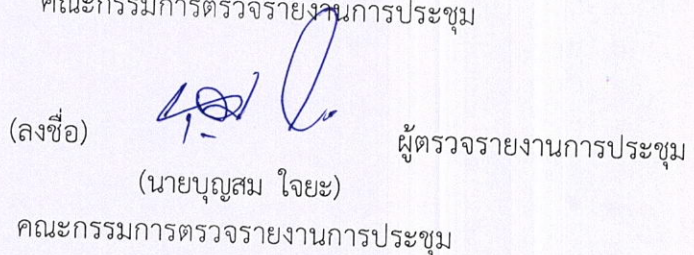 คณะกรรมการตรวจรายงานการประชุม
(ลงชื่อ) ผู้ตรวจรายงานการประชุม
(นายบุญสม ใจยะ)
คณะกรรมการตรวจรายงานการประชุม